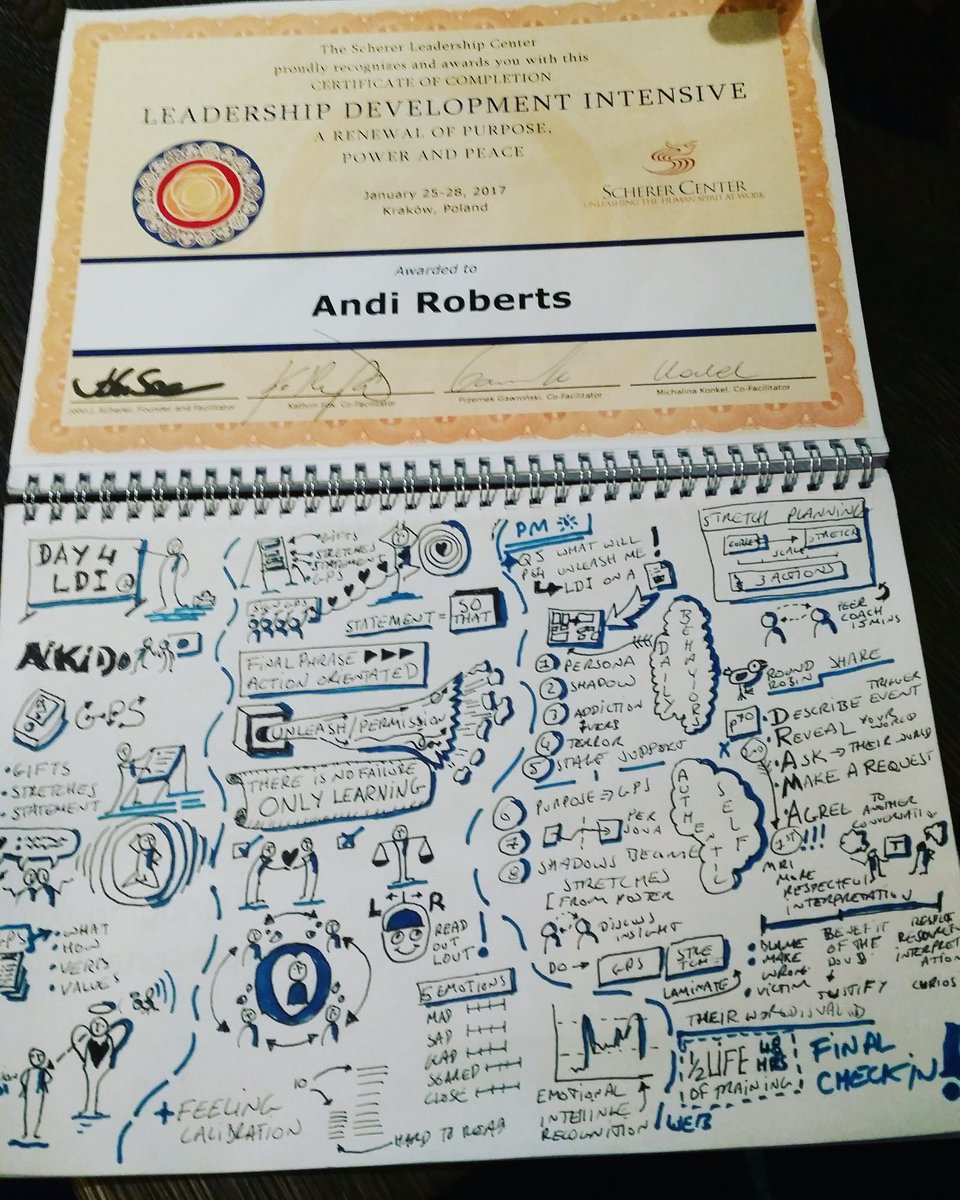 The Scherer Leadership Center
proudly recognizes and awards you with this
CERTIFICATE OF COMPLETION
LEADERSHIP DEVELOPMENT INTENSIVE
A RENEWAL OF PURPOSE,
POWER AND PEACE
January 25-28, 2017
Kraków, Poland
SCHERER CENTER
UNLEASHING THE HUMAN SPIRIT AT WORK
Awarded to
Andi Roberts
John J. Scherer, Founder and Facilitator
Co-Facilitator
Przemek Gawroński, Co-Facilitator
Michalina Konkel, Co-Facilitator
DAY 4
LDI
AIKIDO
GPS
• GIFTS
• STRETCHES
• STATEMENT
WHAT
HOW
VERB
VALUES
GIFTS
STRETCHES
STATEMENT
GPS
STATEMENT = SO THAT
FINAL PHRASE
ACTION ORIENTATED
UNLEASH/PERMISSION
THERE IS NO FAILURE
ONLY LEARNING
L R
READ
OUT
LOUT!
5 EMOTIONS
MAD
SAD
GLAD
SCARED
CLOSE
10
+ FEELING
CALIBRATION
HARD TO READ
PM
Q5 WHAT WILL
UNLEASH ME!
LDI ON A
DAILY
BEHAVIORS
1 PERSONA
2 SHADOW
3 ADDICTION
4 TERROR
5 STAGE SUPPORT
6 PURPOSE ⇒ GPS
7 PERSONA
8 SHADOWS BECOME
STRETCHES
[FROM POSTER
AUTHENTIC
SELF
DISCUSS
INSIGHT
DO → GPS STRETCH
LAMINATE
EMOTIONAL
RECOGNITION
/WEB
STRETCH PLANNING
STRETCH
SCALE
3 ACTIONS
PEER
COACH
15 MINS
ROUND
ROBIN
SHARE
PTO
DESCRIBE EVENT
TRIGGER
REVEAL YOUR
WORLD
ASK → THEIR WORLD
MAKE A REQUEST
AGREE TO
ANOTHER
CONVERSATION
1ST!!!
MRI
MORE
RESPECTFUL
INTERPRETATION
• BLAME
• MAKE
WRONG
• VICTIM
BENEFIT
OF THE
DOUBT
JUSTIFY
CURIOS
THEIR WORLD IS VALID
½ LIFE 48
HRS
OF TRAINING
FINAL
CHECKIN!